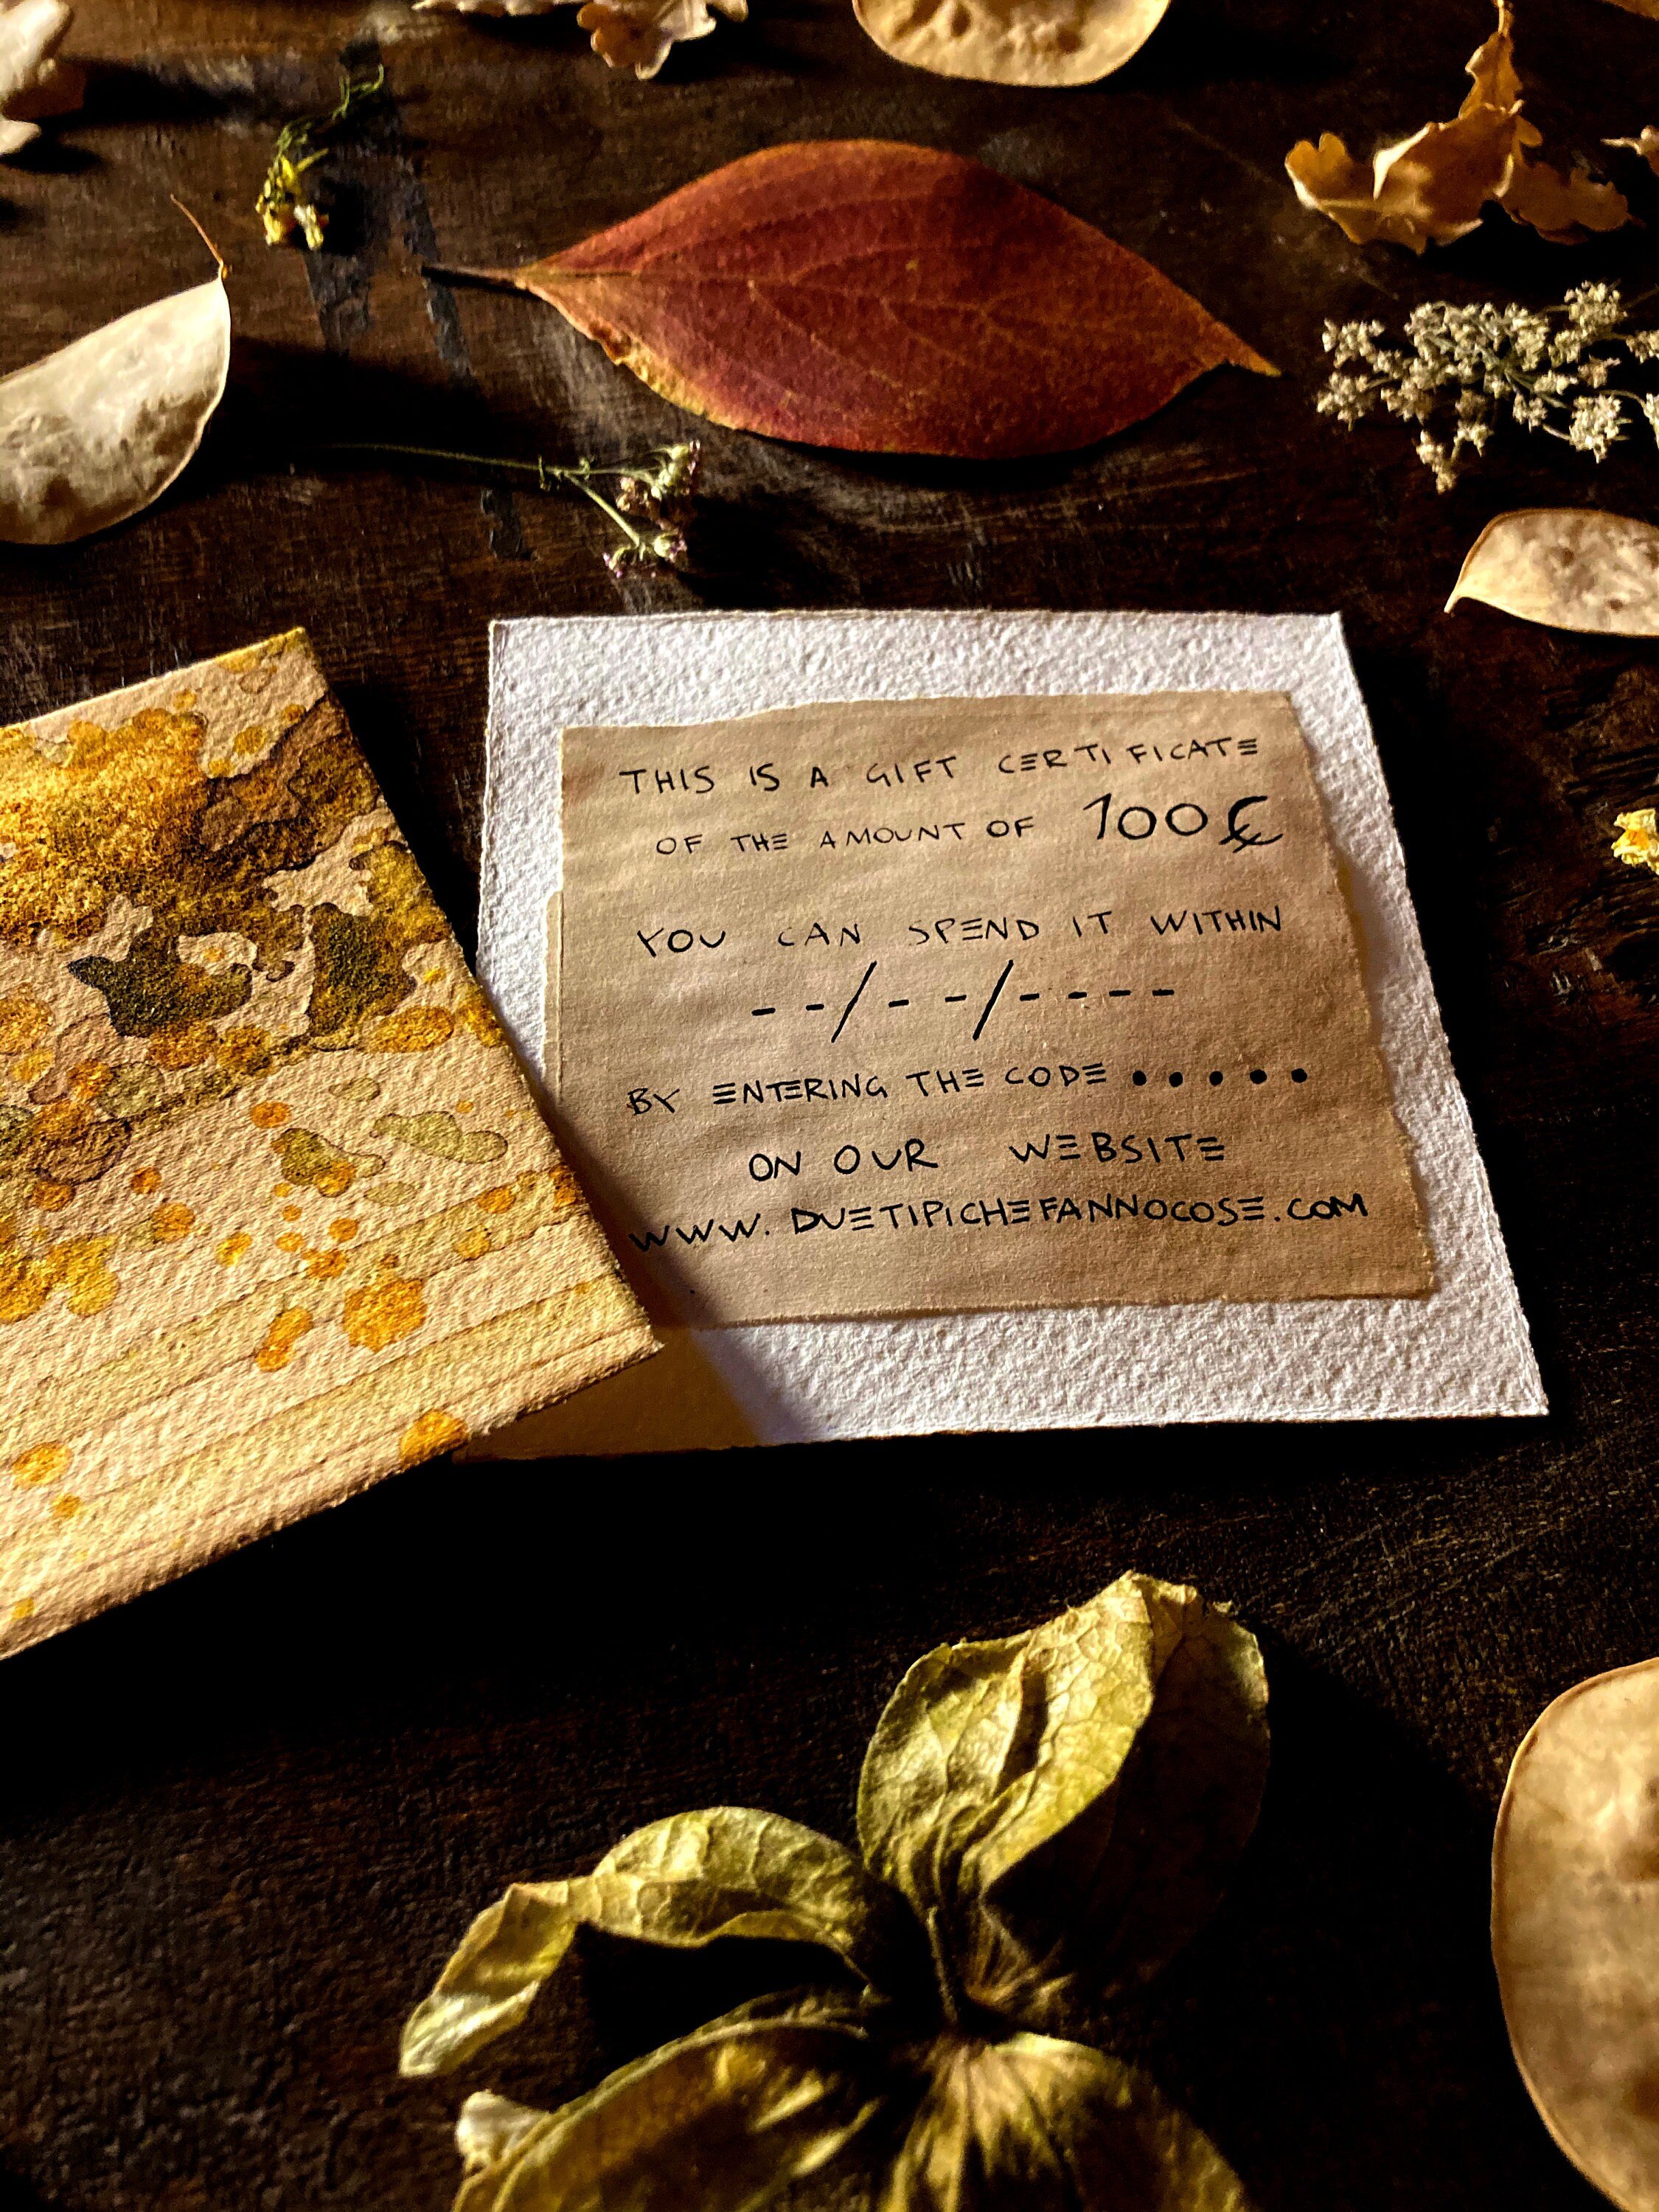 THIS IS A GIFT CERTIFICATE
OF THE AMOUNT OF 100 €
YOU CAN SPEND IT WITHIN
--/--/----
BY ENTERING THE CODE •••••
ON OUR WEBSITE
WWW.DUETIPICHEFANNOCOSE.COM